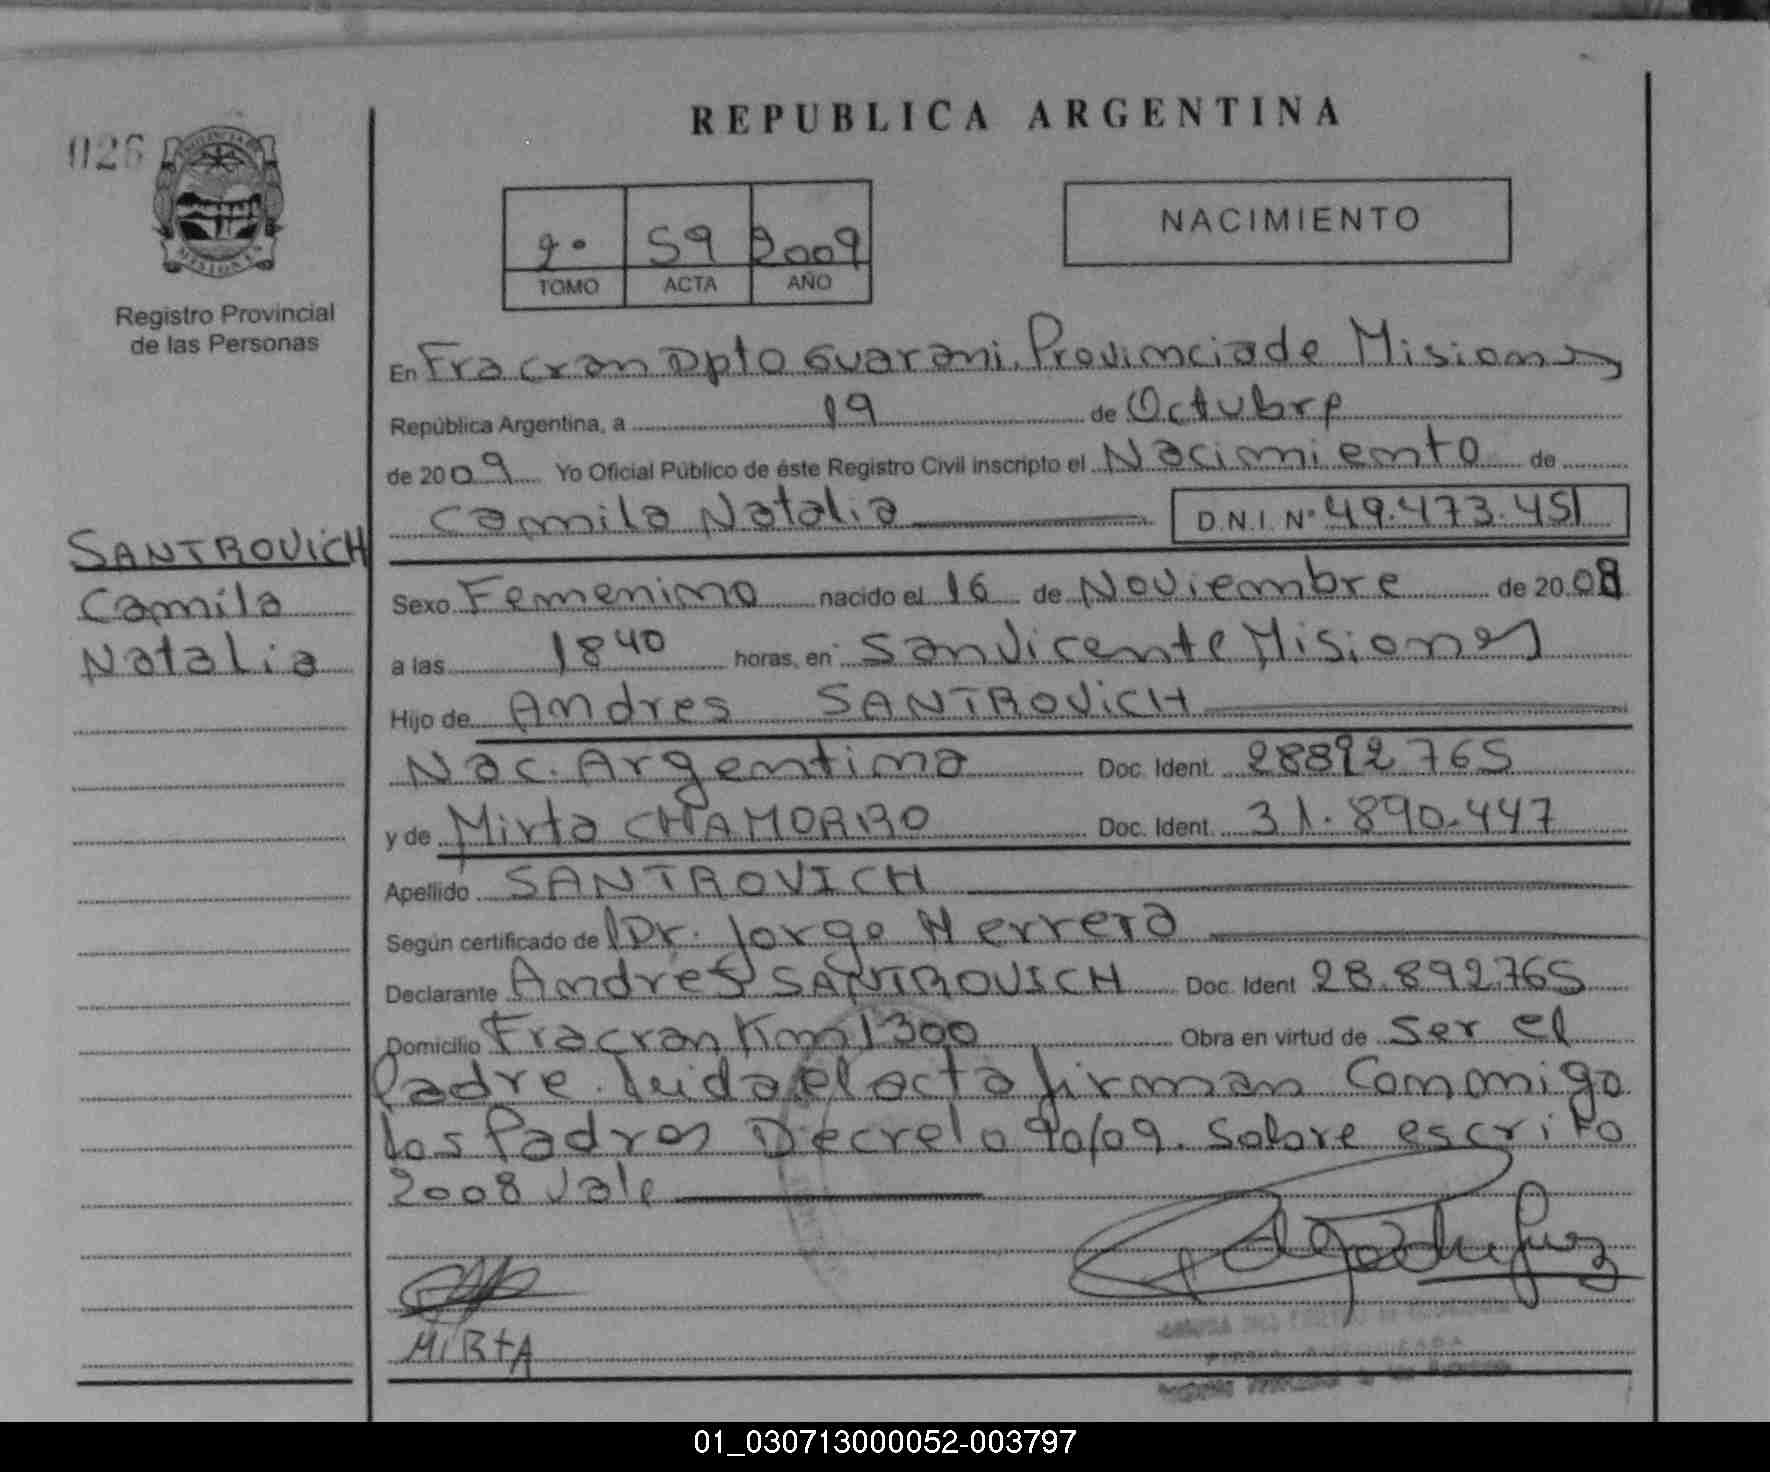 REPUBLICA ARGENTINA
026
NACIMIENTO
2º 59 2009
TOMO ACTA AÑO
Registro Provincial
de las Personas
En Fracran Dpto Guarani. Provincia de Misiones
República Argentina, a 19 de Octubre
de 2009 Yo Oficial Público de éste Registro Civil inscripto el Nacimiento de
Camila Natalia D.N.I. Nº 49.473.451
SANTROVICH
Camila
Natalia
Sexo Femenino nacido el 16 de Noviembre de 2008
a las 1840 horas, en San Vicente Misiones
Hijo de Andres SANTROVICH
Nac. Argentina Doc. Ident. 28892765
y de Mirta CHAMORRO Doc. Ident. 31.890.447
Apellido SANTROVICH
Según certificado de Dr. Jorge Herrera
Declarante Andres SANTROVICH Doc. Ident 28.892.765
Domicilio Fracran Km 1300 Obra en virtud de ser el
Padre. Leida el acta firman Conmigo
los Padres Decreto 90/09. Sobre escrito
2008 Vale
MiRtA
01_030713000052-003797